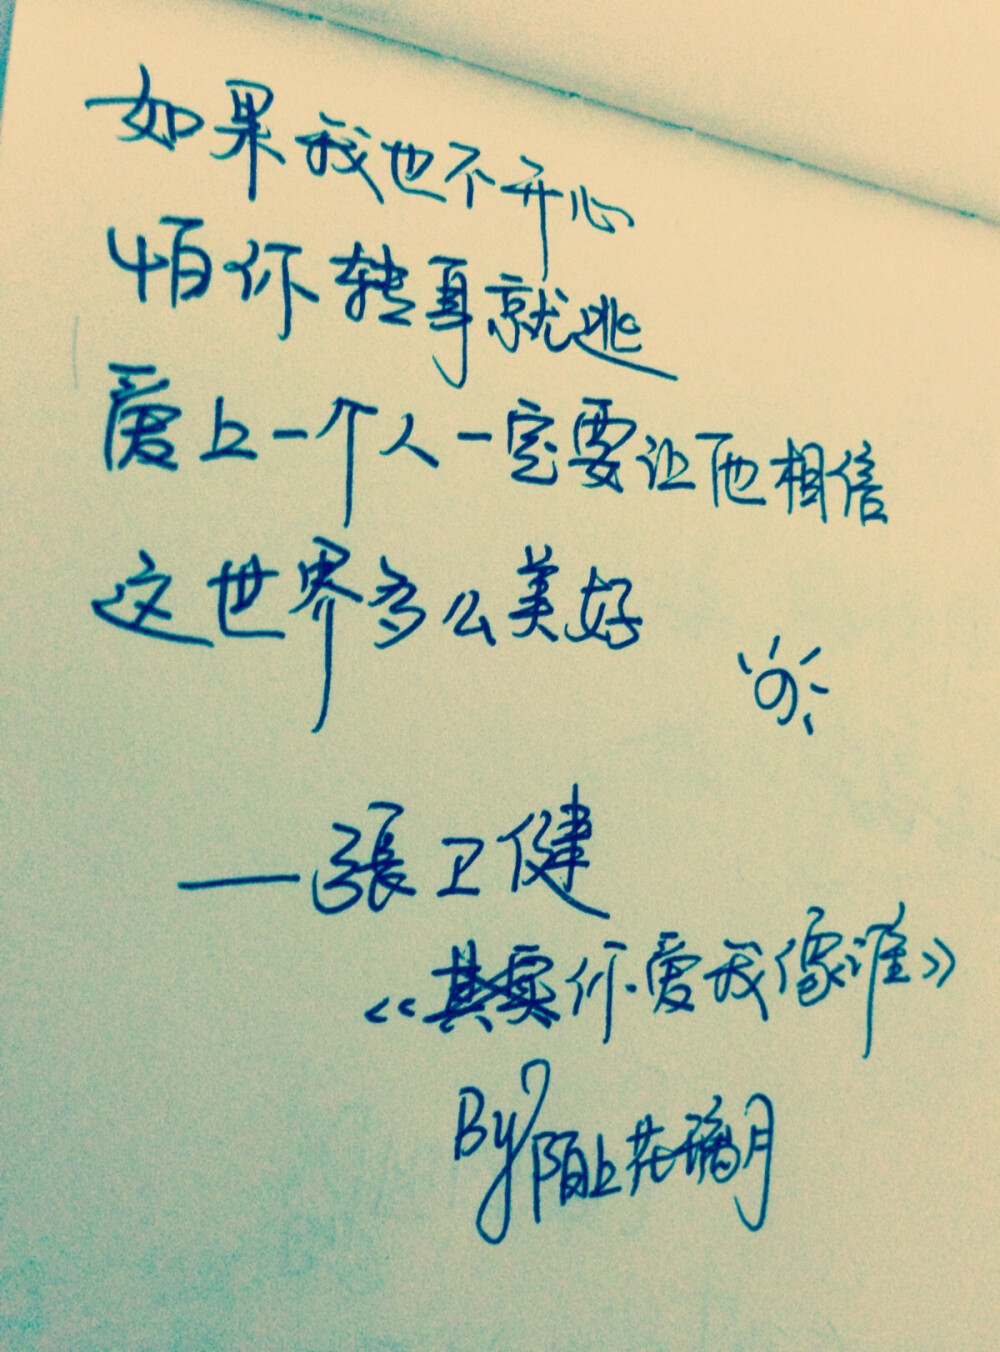 如果我也不开心
怕你转身就逃
爱上一个人一定要让他相信
这世界多么美好
——張卫健
《其实你爱我像谁》
By 陌上花璃月